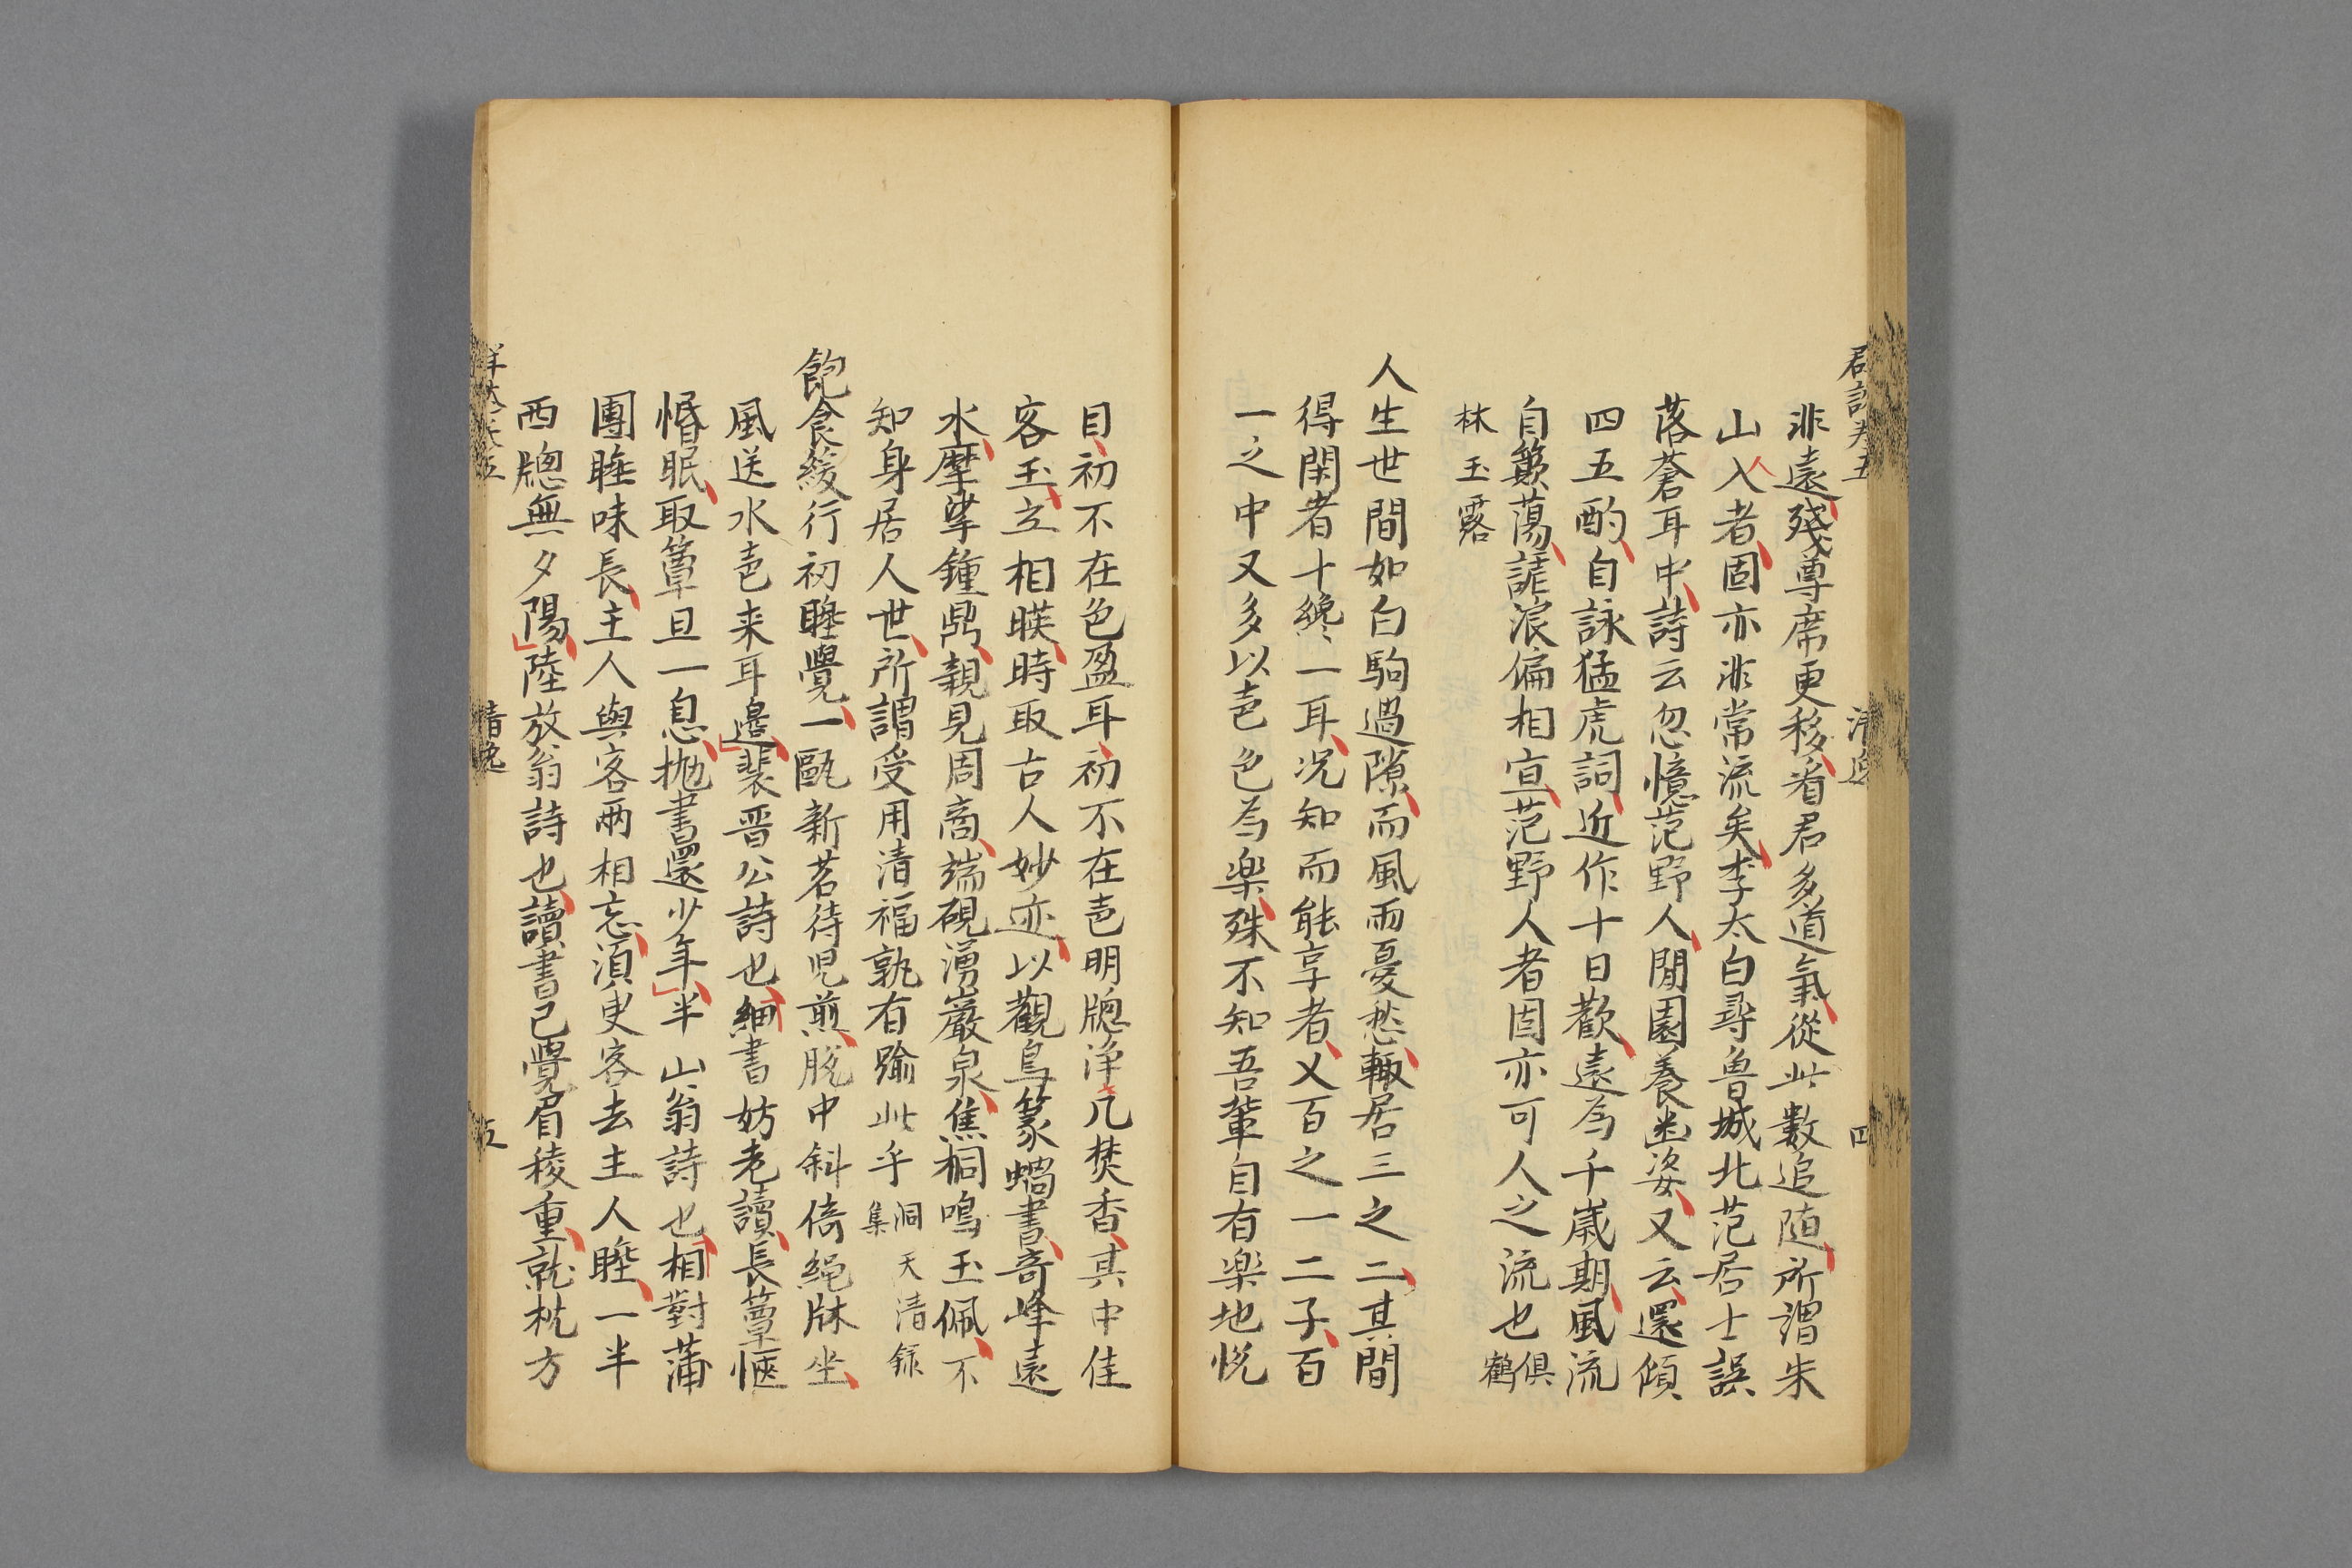 非遠殘尊席更移看君多道氣從此數追随所謂朱
山人者固亦非常流矣李太白尋魯城北范居士誤
落蒼耳中詩云忽憶范野人閒園養幽姿又云還傾
四五酌自詠猛虎詞近作十日歡遠為千歳期風流
自簸蕩謔浪偏相宜范野人者固亦可人之流也俱鶴
林玉露
人生世間如白駒過隙而風雨憂愁輙居三之二其間
得閑者十纔一耳况知而能享者又百之一二子百
一之中又多以声色為楽殊不知吾輩自有楽地悦
目初不在色盈耳初不在声明牕浄几焚香其中佳
客玉立相暎時取古人妙迹以觀鳥篆蝸書奇峰遠
水摩挲鍾鼎親見周商端硯湧巖泉焦桐鳴玉佩不
知身居人世所謂受用清福孰有踰此乎洞天清録集
飽食緩行初睡覺一甌新茗待児煎脱巾斜倚繩牀坐
風送水声来耳邊裴晋公詩也細書妨老讀長簟愜
惛眠取簟且一息抛書還少年半山翁詩也相對蒲
團睡味長主人與客兩相忘湏臾客去主人睡一半
西牕無夕陽陸放翁詩也讀書已覺眉稜重就枕方
清逸
四
清逸
五